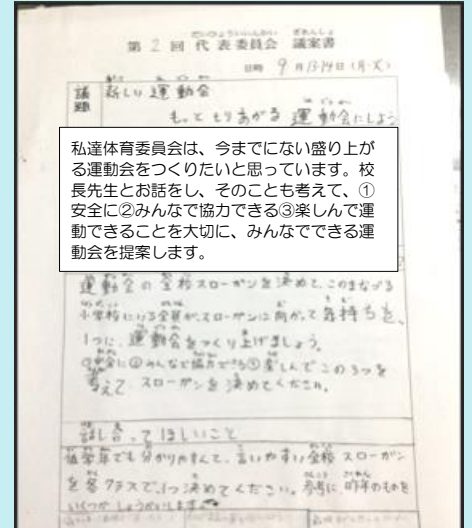 だいひょういいんかい ぎあんしょ
第2回代表委員会 議案書
日時 9月13・14日(月・火)
議題
新しい運動会
もっともりあがる運動会にしよう
私達体育委員会は、今までにない盛り上が
る運動会をつくりたいと思っています。校
長先生とお話をし、そのことも考えて、①
安全に②みんなで協力できる③楽しんで運
動できることを大切に、みんなでできる運
動会を提案します。
運動会の全校スローガンを決めて、このまなづる
小学校にいる全員が、スローガンに向かって気持ちを、
1つに、運動会をつくり上げましょう。
①安全に②みんなで協力できる③楽しんでこの3つを
考えて、スローガンを決めてください。
話し合ってほしいこと
低学年でも分かりやすくて、言いやすい全校スローガン
を各クラスで、1つ決めてください。参考に、昨年のものを
いくつかしょうかいします。